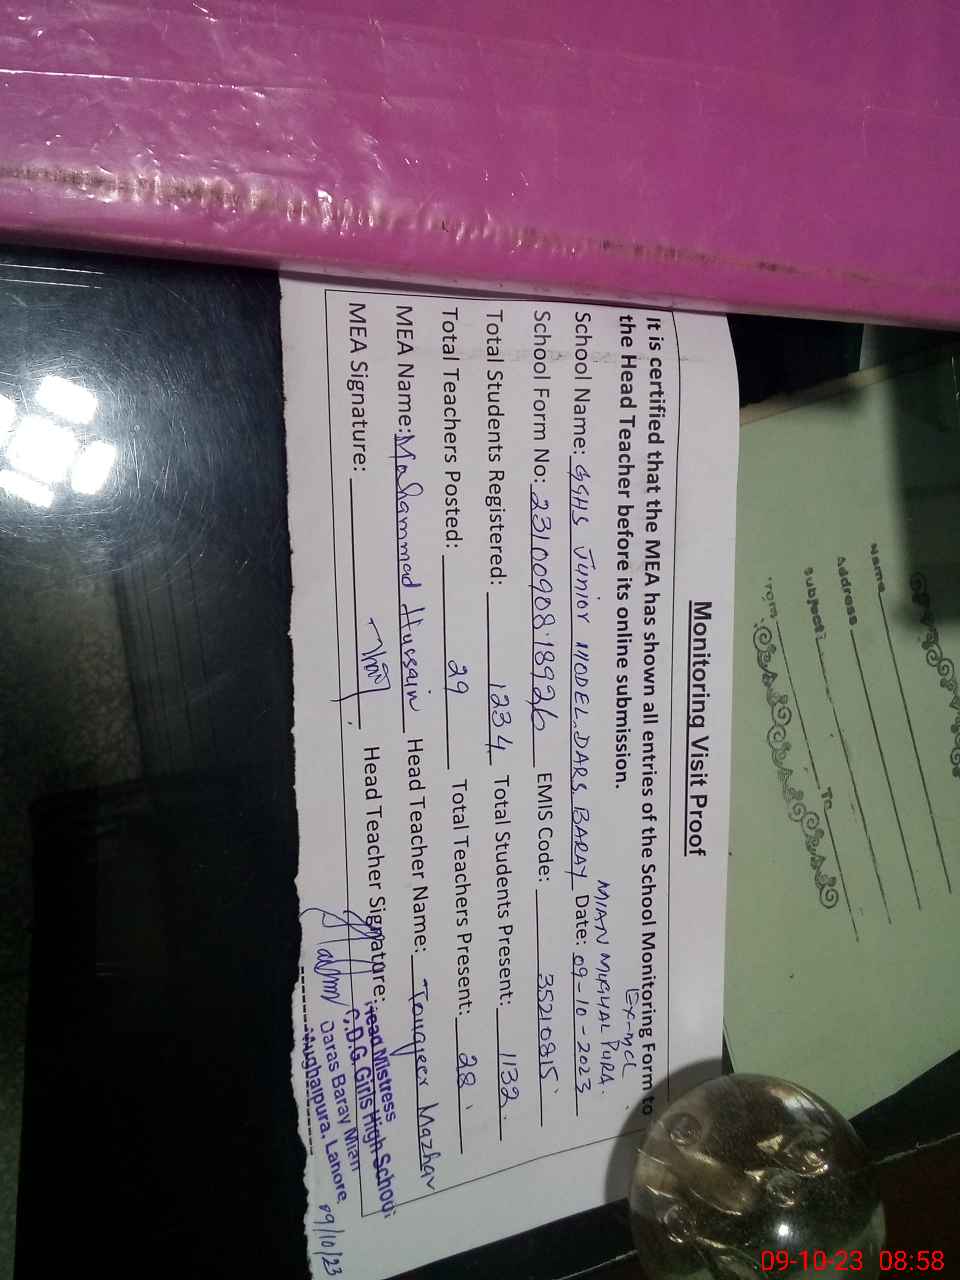 Monitoring Visit Proof
It is certified that the MEA has shown all entries of the School Monitoring Form to
the Head Teacher before its online submission.
Ex-MCL
MIAN MUGHAL PURA.
School Name: GGHS JUNIOR MODEL.DARS BARAY Date: 09-10-2023
School Form No: 23100908.18926 EMIS Code: 35210815
Total Students Registered: 1234 Total Students Present: 1132
Total Teachers Posted: 29 Total Teachers Present: 28
MEA Name: Mohammad Hussain Head Teacher Name: Touqeer Mazhar
MEA Signature: Head Teacher Signature:
Head Mistress
C.D.G. Girls High School
Daras Baray Mian
Mughalpura, Lahore.
09/10/23
Name
Address
Subject:
From To
09-10-23 08:58